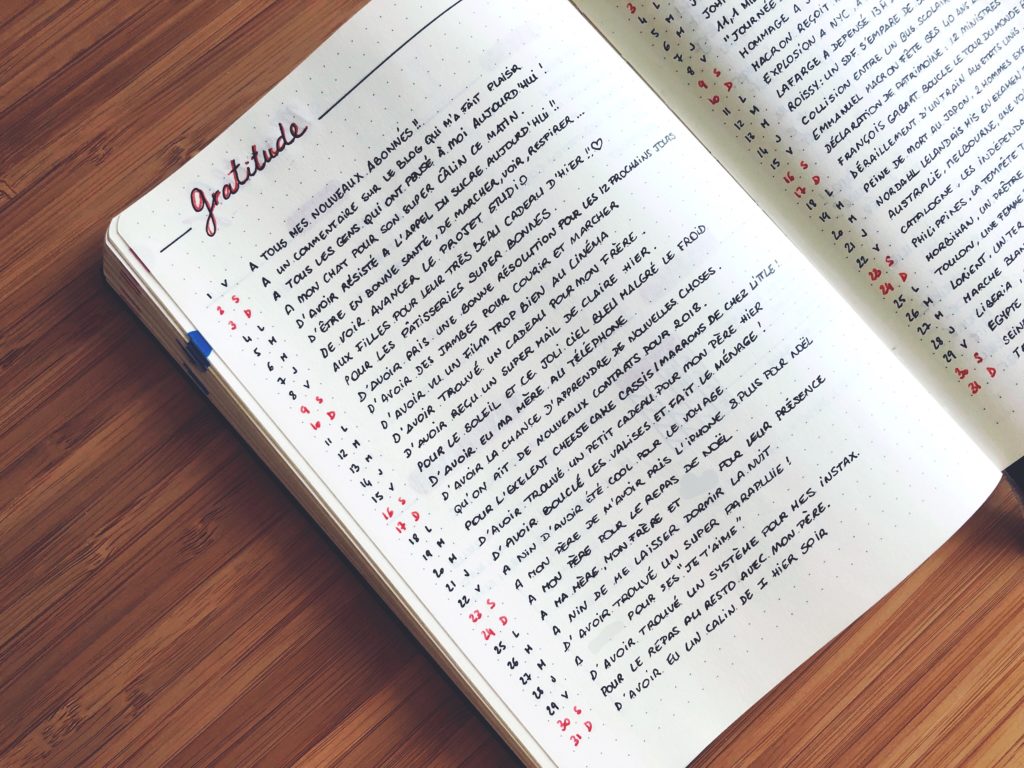 gratitude
1 V A TOUS MES NOUVEAUX ABONNÉS !!
2 S UN COMMENTAIRE SUR LE BLOG QUI M'A FAIT PLAISIR
3 D A TOUS LES GENS QUI ONT PENSÉ À MOI AUJOURD'HUI !
4 L A MON CHAT POUR SON SUPER CÂLIN CE MATIN.
5 M D'AVOIR RÉSISTÉ À L'APPEL DU SUCRE AUJOURD'HUI !!
6 M D'ÊTRE EN BONNE SANTÉ, DE MARCHER, VOIR, RESPIRER...
7 J DE VOIR AVANCER LE PROJET STUDIO
8 V AUX FILLES POUR LEUR TRÈS BEAU CADEAU D'HIER !!♡
9 S POUR LES PATISSERIES SUPER BONNES
10 D D'AVOIR PRIS UNE BONNE RÉSOLUTION POUR LES 12 PROCHAINS JOURS
11 L D'AVOIR DES JAMBES POUR COURIR ET MARCHER
12 M D'AVOIR VU UN FILM TROP BIEN AU CINÉMA
13 M D'AVOIR TROUVÉ UN CADEAU POUR MON FRÈRE.
14 J D'AVOIR REÇU UN SUPER MAIL DE CLAIRE HIER.
15 V POUR LE SOLEIL ET CE JOLI CIEL BLEU MALGRÉ LE FROID
16 S D'AVOIR EU MA MÈRE AU TÉLÉPHONE
17 D D'AVOIR LA CHANCE D'APPRENDRE DE NOUVELLES CHOSES.
18 L QU'ON AIT DE NOUVEAUX CONTRATS POUR 2018.
19 M POUR L'EXCELENT CHEESECAKE CASSIS/MARRONS DE CHEZ LITTLE!
20 M D'AVOIR TROUVÉ UN PETIT CADEAU POUR MON PÈRE HIER
21 J D'AVOIR BOUCLÉ LES VALISES ET FAIT LE MÉNAGE !
22 V A NIN D'AVOIR ÉTÉ COOL POUR LE VOYAGE
23 S A MON PÈRE DE M'AVOIR PRIS L'IPHONE 8 PLUS POUR NOËL
24 D A MON PÈRE POUR LE REPAS DE NOËL
25 L A MA MÈRE, MON FRÈRE ET FOR LEUR PRÉSENCE
26 M A NIN DE ME LAISSER DORMIR LA NUIT
27 M D'AVOIR TROUVÉ UN SUPER PARAPLUIE !
28 J A POUR SES "JE T'AIME"
29 V D'AVOIR TROUVÉ UN SYSTÈME POUR MES INSTAX.
30 S POUR LE REPAS AU RESTO AVEC MON PÈRE.
31 D D'AVOIR EU UN CALIN DE I HIER SOIR
3
4 L
5 M "JOURNÉE
6 M HOMMAGE A
7 J MACRON REÇOIT
8 V EXPLOSION À NYC, A
9 S LAFARGE A DEFENSE 13M
10 D ROISSY: UN SDF S'EMPARE DE
11 L COLLISION ENTRE UN BUS SCOLAIRE
12 M EMMANUEL MACRON FÊTE SES 40 ANS
13 M DÉCLARATION DE PATRIMOINE: 12 MINISTRES
14 J FRANÇOIS GABART BOUCLE LE TOUR DU MONDE
15 V DÉRAILLEMENT D'UN TRAIN AU ÉTATS UNIS
16 S PEINE DE MORT AU JAPON: 2 HOMMES
17 D NORDAHL LELANDAIS MIS EN EXAMEN
18 L AUSTRALIE, MELBOURNE,
19 M CATALOGNE, LES INDÉPEND
20 M PHILIPPINES, LA TEMPÊTE
21 J MORBIHAN, UN PRÊTRE
22 V TOULON, UNE FEMME
23 S LORIENT. UN TER
24 D MARCHE BLANC
25 L LIBERIA,
26 M EGYPTE,
27 M
28 J
29 V
30 S
31 D